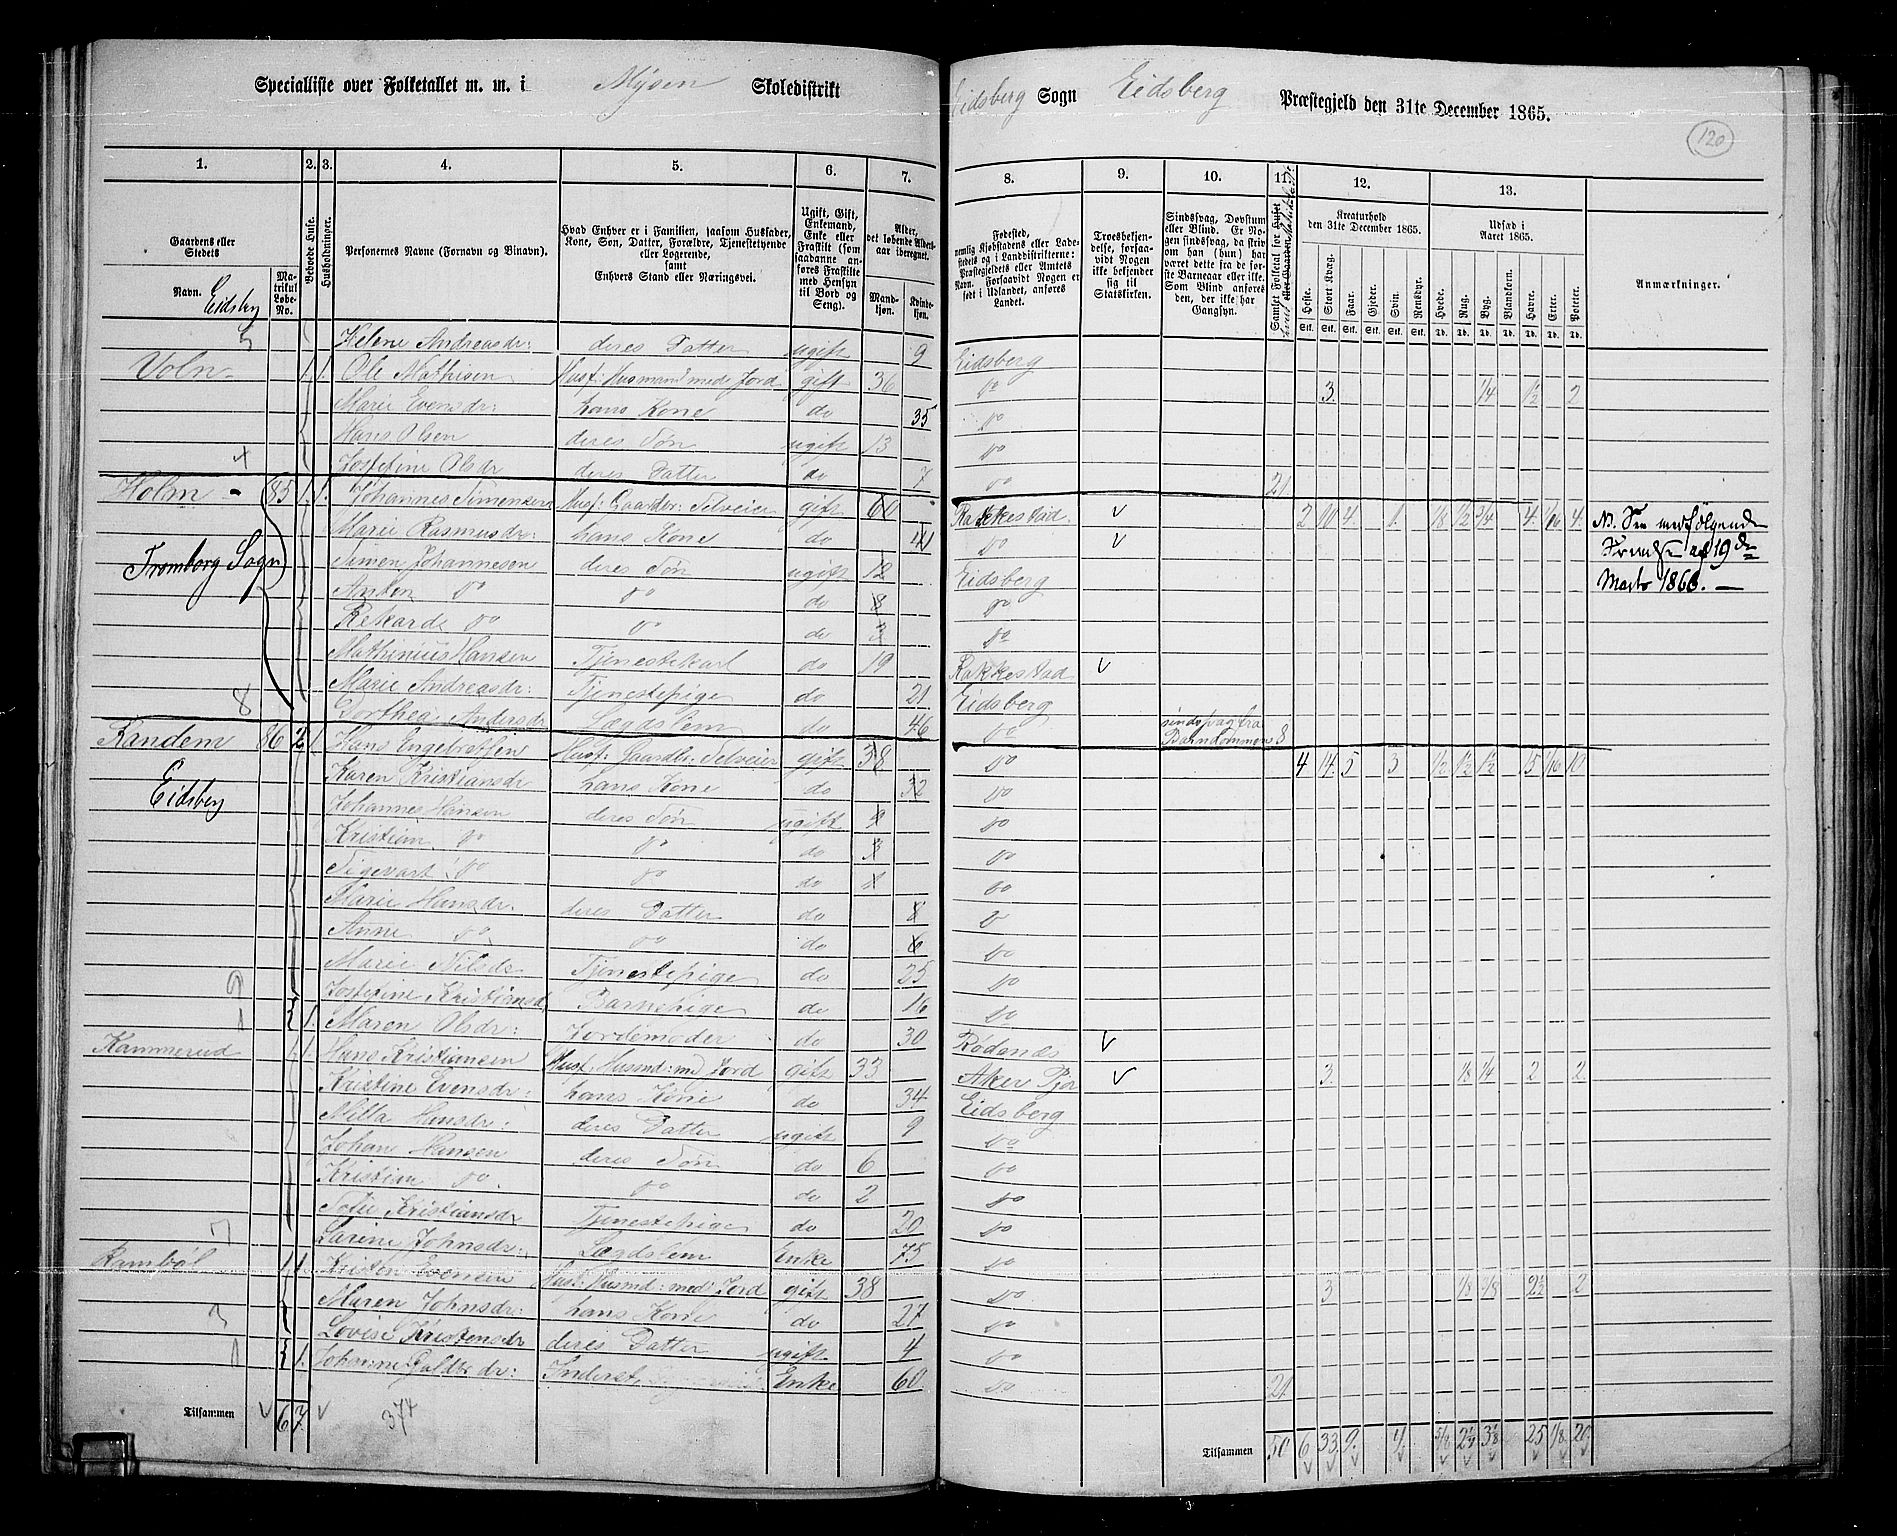 Specialliste over Folketallet m. m. i Mysen Skoledistrikt Eidsberg Sogn Eidsberg Præstegjeld den 31te December 1865.
120
1. 2. 3. 4. 5. 6. 7. 8. 9. 10. 11. 12. 13.
Gaardens eller Stedets
Navn.
Eidsberg
Matrikul Løbe-No.
Beboede Huse.
Husholdninger.
Personernes Navne (Fornavn og Binavn).
Hvad Enhver er i Familien, saasom Husfader, Kone, Søn, Datter, Forældre, Tjenestetyende eller Logerende, samt Enhvers Stand eller Næringsvei.
Ugift, Gift, Enkemand, Enke eller Fraskilt (som saadanne anføres Fraskilte med Hensyn til Bord og Seng).
Alder, det løbende Aldersaar iberegnet.
Mandkjøn. Kvindekjøn.
Fødested, nemlig Kjøbstadens eller Ladestedets og i Landdistrikterne: Præstegjeldets eller Amtets Navn. Forsaavidt Nogen er født i Udlandet, anføres Landet.
Troesbekjendelse, forsaavidt Nogen ikke bekjender sig til Statskirken.
Sindssvag, Døvstum eller Blind. Er Nogen sindssvag, da skrives om han (hun) har været dette fra de første Barneaar eller ikke. Som Blind anføres den, der ikke har Gangsyn.
Kreaturhold den 31te December 1865.
Heste. Stort Kvæg. Faar. Gjeder. Svin. Rensdyr.
Udsæd i Aaret 1865.
Hvede. Rug. Byg. Blandkorn. Havre. Erter. Poteter.
Anmærkninger.
Helene Andreasdr: deres Datter ugift 9 Eidsberg
Voln 1. 1. Ole Mathisen Husf: Husmand med Jord gift 36 do 3. 1/4 1 1/2 2
Marie Evensdr: hans Kone do 35 do
Hans Olsen deres Søn ugift 13 do
Josefine Olsdr deres Datter do 7 do 21
Holm 85 1. 1. Johannes Simensen Husf: Gaardbr: Selveier gift 60 Rakkestad 2 10 4. 1. 1/8 1/2 3/4 4. 1/16 4. NB. See medfølgende
Marie Rasmusdr: hans Kone do 41 do
Tromborg Sogn Simen Johannesen deres Søn ugift 12 Eidsberg
Skrivelse af 19de
Anton do do do 8 do
Marts 1866. —
Rekarde do do do 3 do
Mathinius Hansen Tjenestekarl do 19 Rakkestad
Marie Andreasdr: Tjenestepige do 21 Eidsberg
8 Dorthea Andersdr Lægdslem do 46 do sindsvag fra Barndommen 8
Randem 86 2 1. Hans Engebretsen Husf: Gaardbr: Selveier gift 38 do 4 14. 5 3 1/2 1/2 1 1/2 15 1/16 10
Karen Kristiansdr hans Kone do 32 do
Eidsberg Johannes Hansen deres Søn ugift 9 do
Kristian do do do 3 do
Sigevart do do do 1 do
Marie Hansdr. deres Datter do 8 do
Anne do do do 6 do
Marie Nilsdr Tjenestepige do 25 do
9 Josefine Kristiansd Barnepige do 16 do
1 1. Maren Olsdr: Jordemoder do 30 Rødenæs
Kammerud 1. Hans Kristiansen Husf: Husmd: md Jord gift 33 Aker Pjr 3. 1/8 1/4 2 2
Kristine Evensdr: hans Kone do 34 Eidsberg
Milla Hansdr: deres Datter ugift 9 do
Johan Hansen deres Søn do 6 do
Kristian do. do do 2 do
Sofie Kristiansdr Tjenestepige do 20 do
7 Larine Johnsdr: Lægdslem Enke 75 do
Rambøl 1 1. Kristen Evensen Husf: Husmd: med Jord gift 38 do 3 1/8 3/8 2 1/2 2
Maren Johnsdr: hans Kone do 27 do
3 Lovise Kristensdr deres Datter ugift 4 do
1 1. Johanne Guldbr dr: Inderst Enke 60 do 21
Tilsammen 6 7. 374 Tilsammen 50 6 33. 9. 4 5/8 2 1/4 3 1/8 25 1/8 20